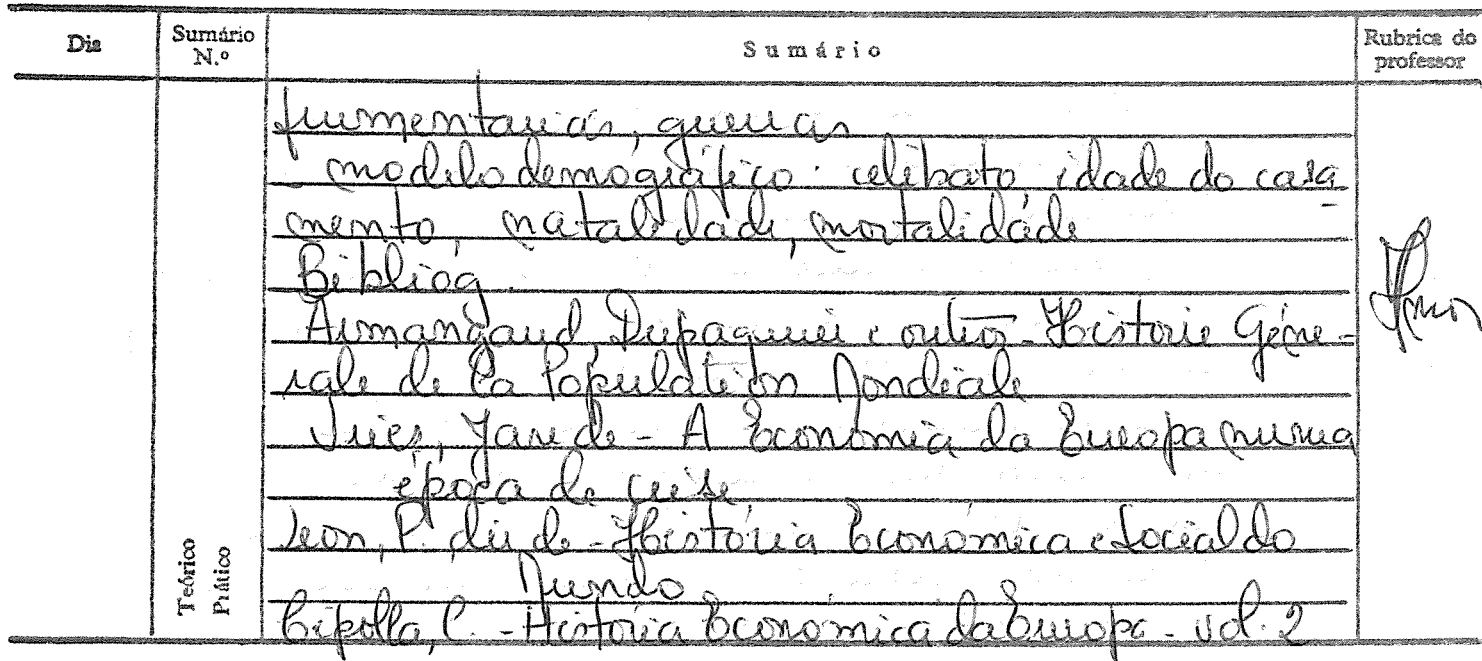 Dia
Sumário N.º
Sumário
Rubrica do professor
frumentarias, guerras
- modelo demográfico: celibato, idade do casa
mento, natalidade, mortalidade
Bibliog.
Armangaud, Dupaquier e outros - Historie Géne-
rale de la Population Mondiale
Vries, Jan de - A Economia da Europa numa
época de crise
Leon, P. dir de - História Económica e Social do
Mundo
Cipolla, C. - História Económica da Europa - vol. 2
Teórico
Prático